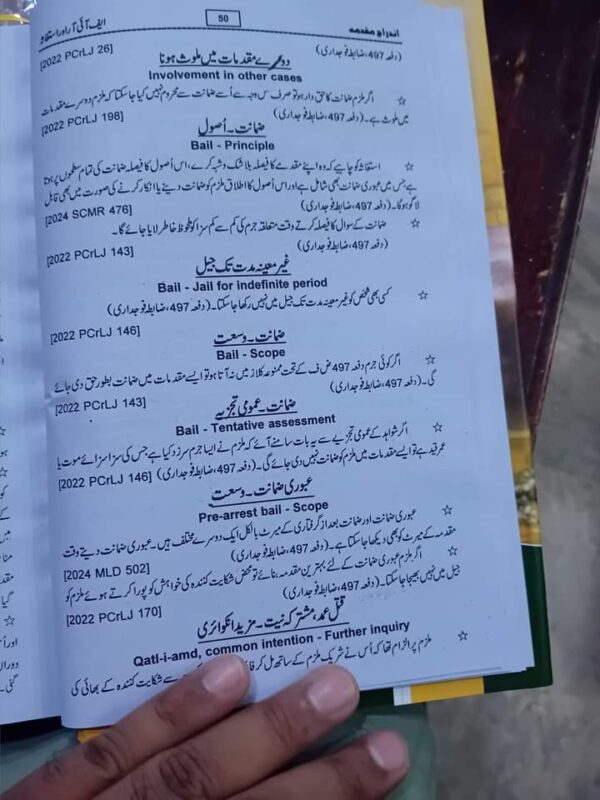 اندراج مقدمہ
50
ایف آئی آر اور استغاثہ
(دفعہ 497، ضابطہ فوجداری)
[2022 PCrLJ 26]
دوسرے مقدمات میں ملوث ہونا
Involvement in other cases
☆ اگر ملزم ضمانت کا حق دار ہو تو صرف اس وجہ سے اُسے ضمانت سے محروم نہیں کیا جا سکتا کہ ملزم دوسرے مقدمات
میں ملوث ہے۔ (دفعہ 497، ضابطہ فوجداری)
[2022 PCrLJ 198]
ضمانت۔ اُصول
Bail - Principle
☆ استغاثہ کو چاہیے کہ وہ اپنے مقدمے کا فیصلہ بلا شک و شبہ کرے، اس اُصول کا فیصلہ ضمانت کی تمام سطحوں پر ہوتا
ہے جس میں عبوری ضمانت بھی شامل ہے اور اس اُصول کا اطلاق ملزم کو ضمانت دینے یا انکار کرنے کی صورت میں بھی قابل
لاگو ہوگا۔ (دفعہ 497، ضابطہ فوجداری)
[2024 SCMR 476]
☆ ضمانت کے سوال کا فیصلہ کرتے وقت متعلقہ جرم کی کم سے کم سزا کو ملحوظ خاطر لایا جائے گا۔
(دفعہ 497، ضابطہ فوجداری)
[2022 PCrLJ 143]
غیر معینہ مدت تک جیل
Bail - Jail for indefinite period
☆ کسی بھی شخص کو غیر معینہ مدت تک جیل میں نہیں رکھا جا سکتا۔ (دفعہ 497، ضابطہ فوجداری)
[2022 PCrLJ 146]
ضمانت۔ وسعت
Bail - Scope
☆ اگر کوئی جرم دفعہ 497 ض ف کے تحت ممنوعہ کلاز میں نہ آتا ہو تو ایسے مقدمات میں ضمانت بطور حق دی جائے
گی۔ (دفعہ 497، ضابطہ فوجداری)
[2022 PCrLJ 143]
ضمانت۔ عمومی تجزیہ
Bail - Tentative assessment
☆ اگر شواہد کے عمومی تجزیے سے یہ بات سامنے آئے کہ ملزم نے ایسا جرم سرزد کیا ہے جس کی سزا سزائے موت یا
عمر قید ہے تو ایسے مقدمات میں ملزم کو ضمانت نہیں دی جائے گی۔ (دفعہ 497، ضابطہ فوجداری) [2022 PCrLJ 146]
عبوری ضمانت۔ وسعت
Pre-arrest bail - Scope
☆ عبوری ضمانت اور ضمانت بعد از گرفتاری کے میرٹ بالکل ایک دوسرے مختلف ہیں۔ عبوری ضمانت دیتے وقت
مقدمہ کے میرٹ کو بھی دیکھا جا سکتا ہے۔ (دفعہ 497، ضابطہ فوجداری)
[2024 MLD 502]
☆ اگر ملزم عبوری ضمانت کے لئے بہترین مقدمہ بنائے تو محض شکایت کنندہ کی خواہش کو پورا کرتے ہوئے ملزم کو
جیل میں نہیں بھیجا جا سکتا۔ (دفعہ 497، ضابطہ فوجداری)
[2022 PCrLJ 170]
قتل عمد، مشترکہ نیت۔ مزید انکوائری
Qatl-i-amd, common intention - Further inquiry
☆ ملزم پر الزام تھا کہ اُس نے شریک ملزم کے ساتھ مل کر سے شکایت کنندہ کے بھائی کی